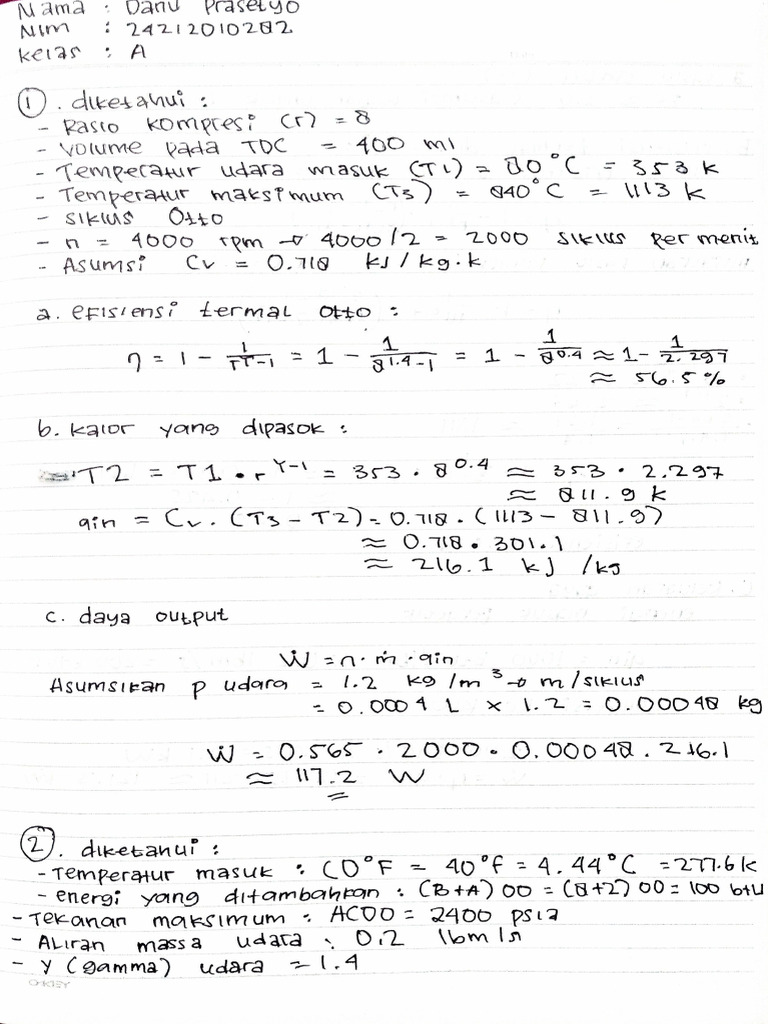 Nama : Danu Prasetyo
Nim : 24212010282
Kelas : A
1. diketahui :
- Rasio kompresi (r) = 8
- Volume pada TDC = 400 ml
- Temperatur udara masuk (T1) = 80°C = 353 K
- Temperatur maksimum (T3) = 840°C = 1113 K
- siklus Otto
- n = 4000 rpm → 4000/2 = 2000 siklus per menit
- Asumsi Cv = 0.718 kJ/kg.k
a. efisiensi termal otto :
η = 1 - 1/r^γ-1 = 1 - 1/8^1.4-1 = 1 - 1/8^0.4 ≈ 1 - 1/2.297
≈ 56.5%
b. kalor yang dipasok :
T2 = T1 • r^γ-1 = 353 • 8^0.4 ≈ 353 • 2.297
≈ 811.9 k
qin = Cv. (T3 - T2) = 0.718 • (1113 - 811.9)
≈ 0.718 • 301.1
≈ 216.1 kJ /kg
c. daya output
Ẇ = n • ṁ • qin
Asumsikan ρ udara = 1.2 kg/m³ → m/siklus
= 0.0004 L × 1.2 = 0.00048 kg
Ẇ = 0.565 • 2000 • 0.00048 . 216.1
≈ 117.2 W
2. diketahui :
- Temperatur masuk : CD°F = 40°F = 4.44°C = 277.6 k
- energi yang ditambahkan : (B+A)00 = (8+2)00 = 100 btu
- Tekanan maksimum : AC00 = 2400 psia
- Aliran massa udara : 0.2 lbm/s
- γ (gamma) udara = 1.4